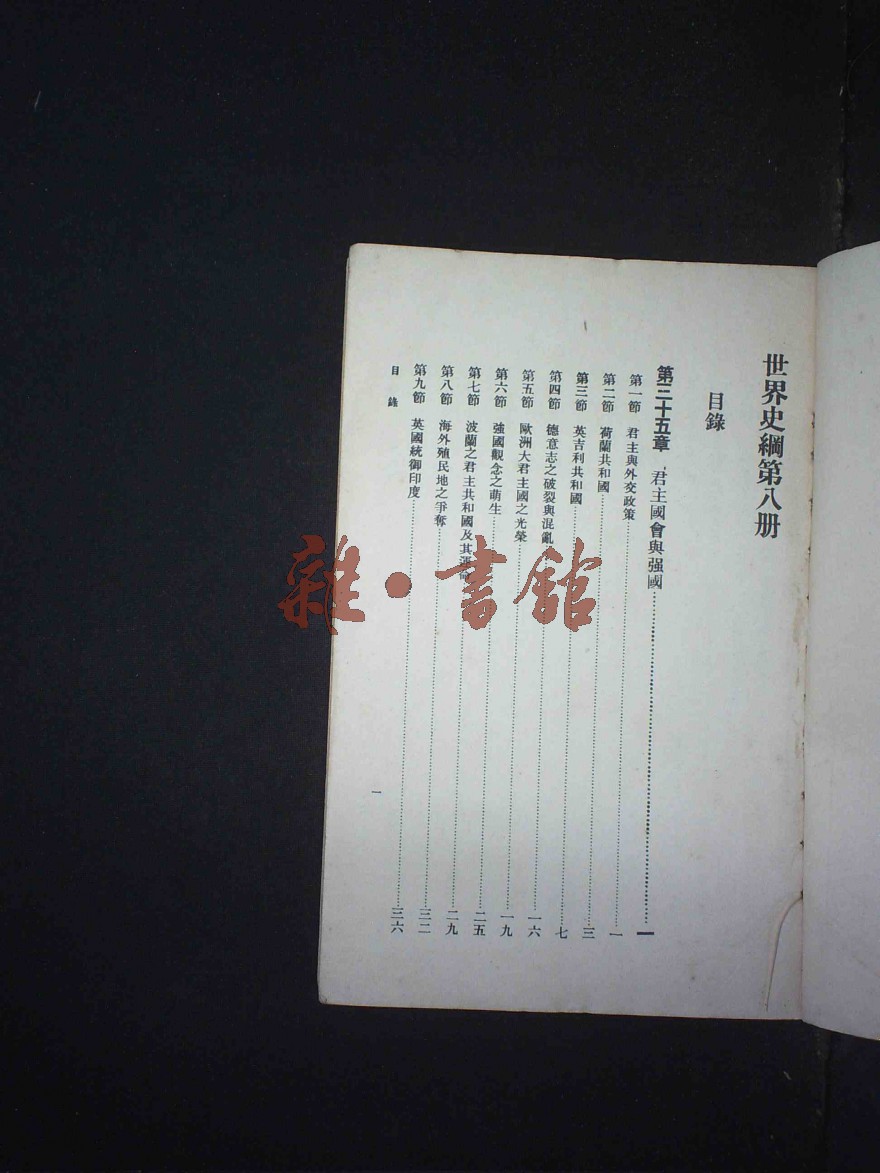 世界史綱第八册
目錄
第三十五章 君主國會與强國……一
第一節 君主與外交政策……一
第二節 荷蘭共和國……三
第三節 英吉利共和國……七
第四節 德意志之破裂與混亂……一六
第五節 歐洲大君主國之光榮……一九
第六節 強國觀念之萌生……二五
第七節 波蘭之君主共和國及其運命……二九
第八節 海外殖民地之爭奪……三二
第九節 英國統御印度……三六
目錄
一
雜·書館